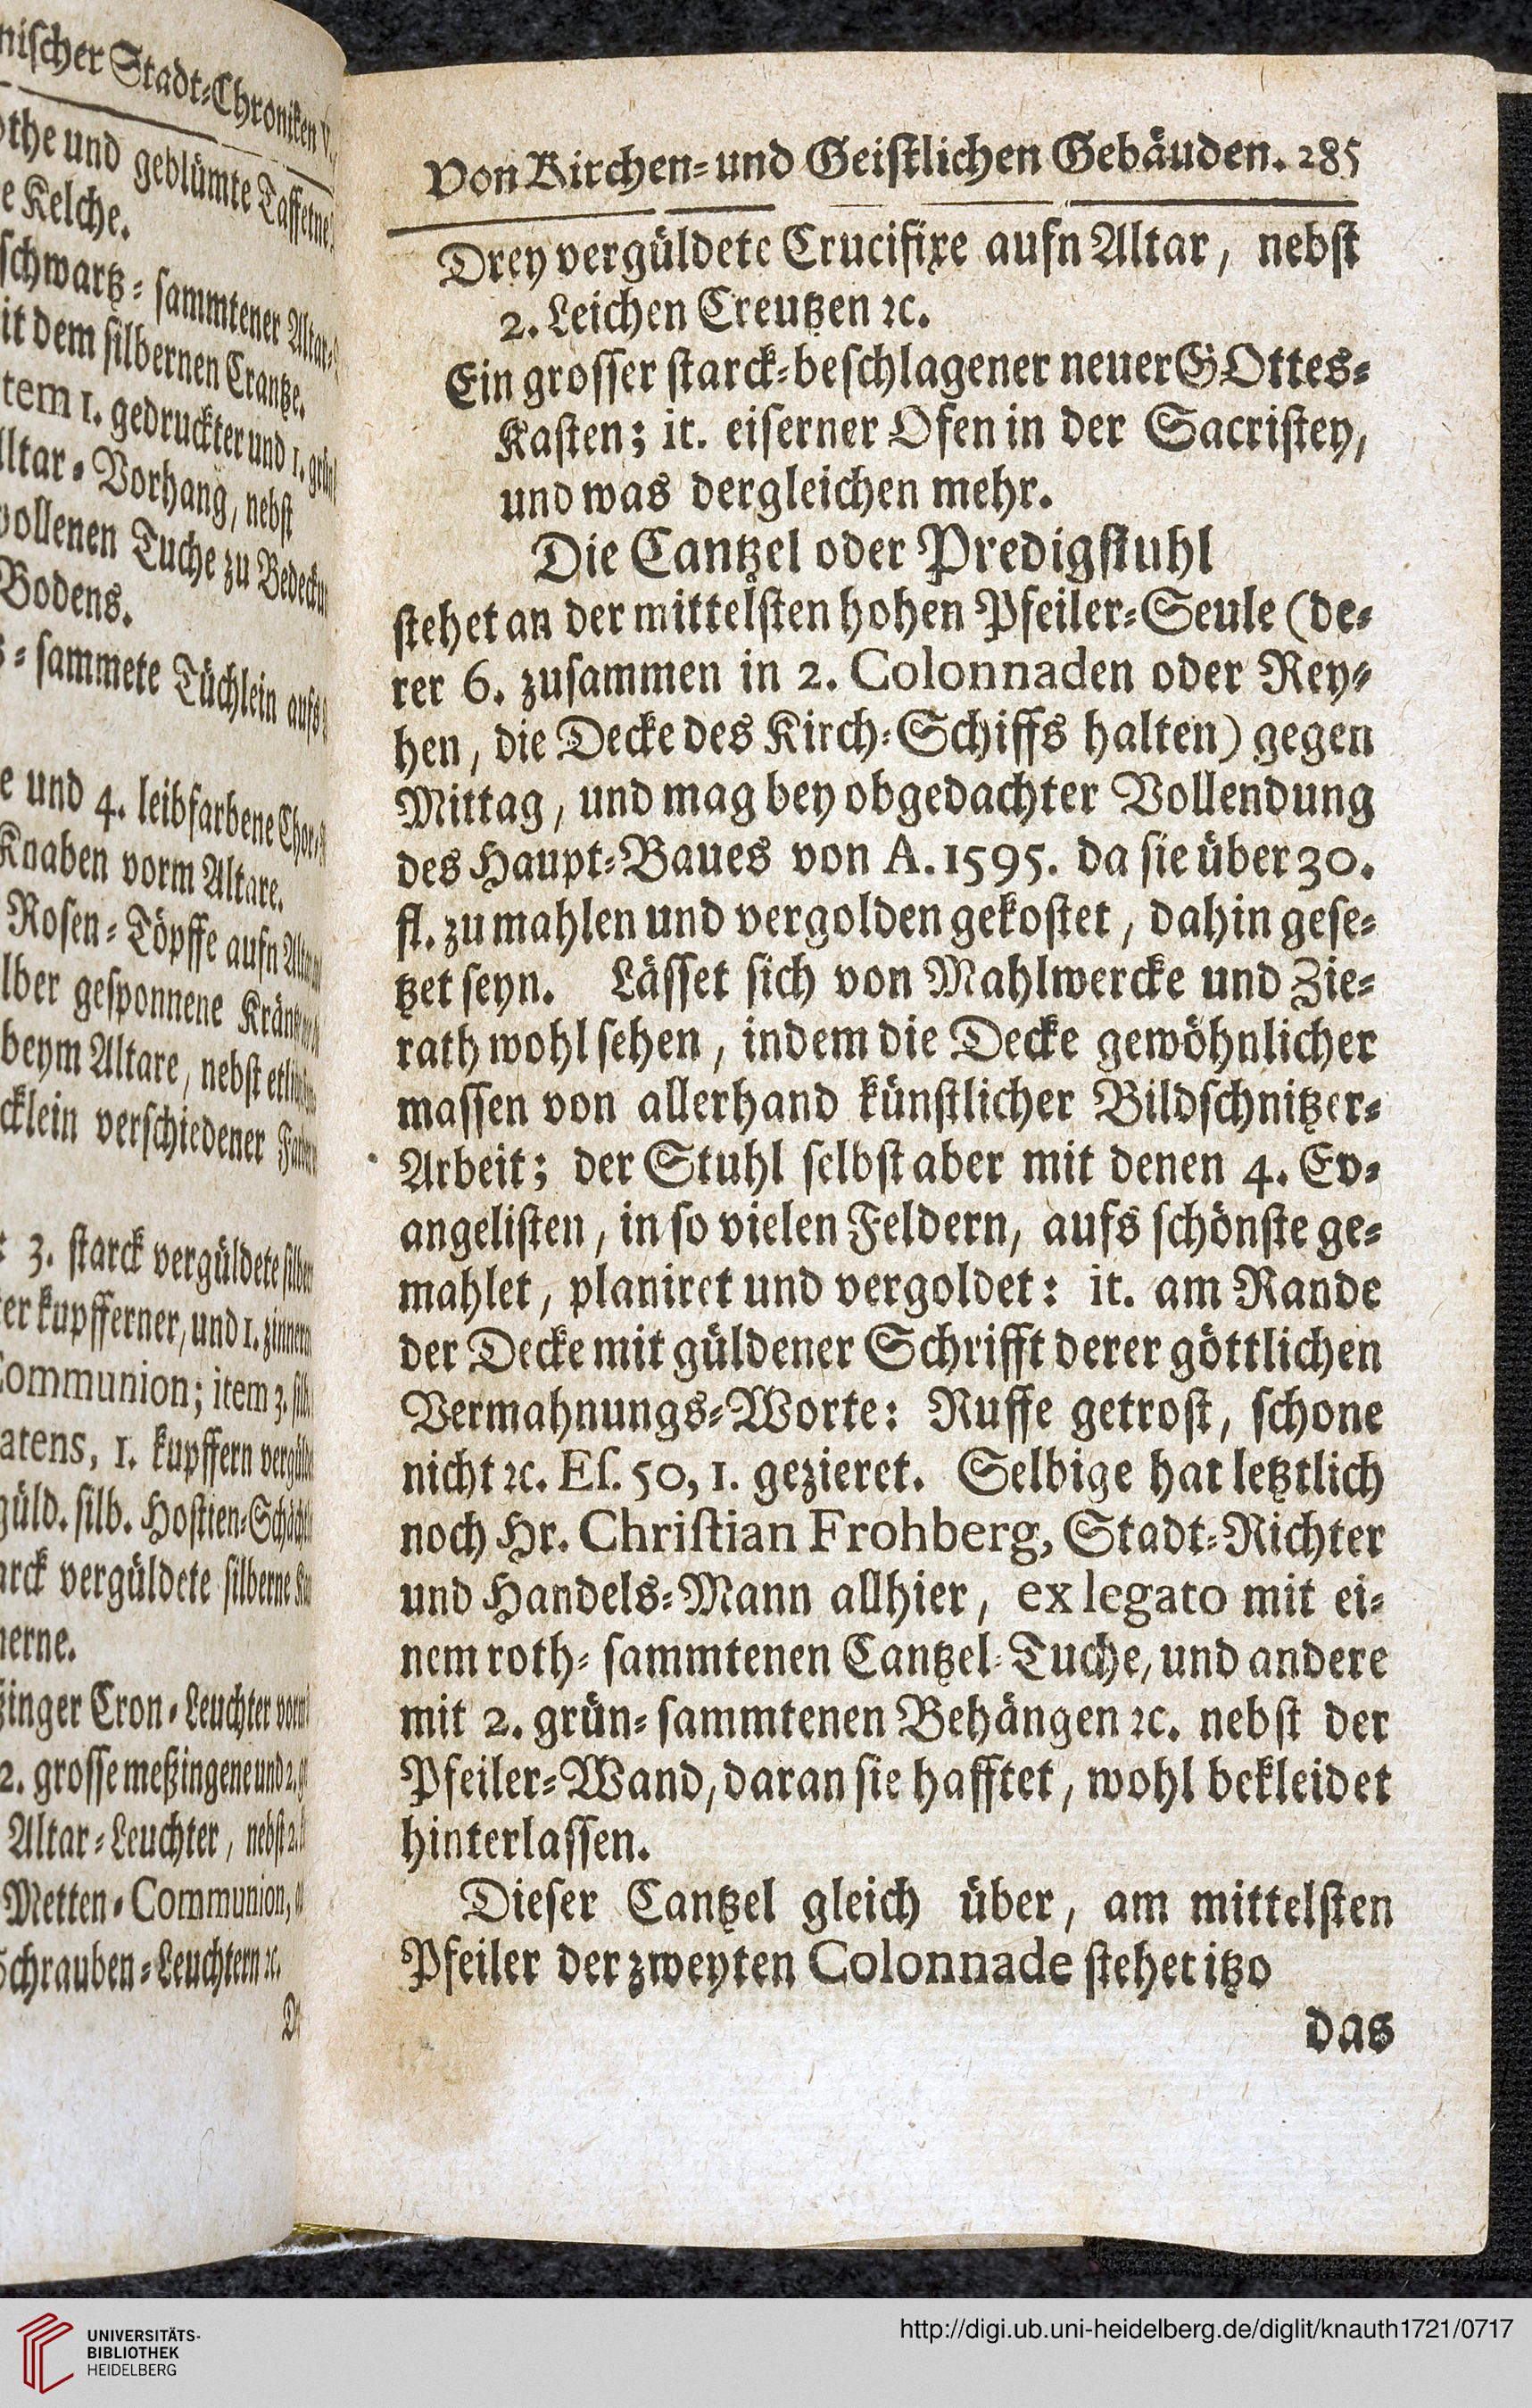 nischer Stadt-Chroniken
othe und geblümte
e Kelche.
schwartz-sammtener
it dem silbernen Crantze.
tem 1. gedruckter und 1.
Altar-Vorhang, nebst
wollenen Tuche zu
Bodens.
sammete Tüchlein
e und 4. leibfarbene
Knaben vorm Altare.
Rosen-Töpffe aufn
lber gesponnene
beym Altare, nebst
cklein verschiedener
3. starck vergüldete
er kupfferner, und 1.
Communion; item 3.
atens, 1. kupffern
güld. silb. Hostien-
arck vergüldete silberne
nerne.
inger Cron-Leuchter
2. grosse meßingene und 2.
Altar-Leuchter, nebst 2.
Metten-Communion,
Schrauben-Leuchtern ꝛc.
Von Kirchen-und Geistlichen Gebäuden. 285
Drey vergüldete Crucifixe aufn Altar, nebst
2. Leichen Creutzen ꝛc.
Ein grosser starck-beschlagener neuer GOttes-
Kasten; it. eiserner Ofen in der Sacristey,
und was dergleichen mehr.
Die Cantzel oder Predigstuhl
stehet an der mittelsten hohen Pfeiler-Seule (de-
rer 6. zusammen in 2. Colonnaden oder Rey-
hen, die Decke des Kirch-Schiffs halten) gegen
Mittag, und mag bey obgedachter Vollendung
des Haupt-Baues von A. 1595. da sie über 30.
fl. zu mahlen und vergolden gekostet, dahin gese-
tzet seyn. Lässet sich von Mahlwercke und Zie-
rath wohl sehen, indem die Decke gewöhnlicher
massen von allerhand künstlicher Bildschnitzer-
Arbeit; der Stuhl selbst aber mit denen 4. Ev-
angelisten, in so vielen Feldern, aufs schönste ge-
mahlet, planiret und vergoldet: it. am Rande
der Decke mit güldener Schrifft derer göttlichen
Vermahnungs-Worte: Ruffe getrost, schone
nicht ꝛc. Eſ. 50, 1. gezieret. Selbige hat letztlich
noch Hr. Chriſtian Frohberg, Stadt-Richter
und Handels-Mann allhier, ex legato mit ei-
nem roth-sammtenen Cantzel-Tuche, und andere
mit 2. grün-sammtenen Behängen ꝛc. nebst der
Pfeiler-Wand, daran sie hafftet, wohl bekleidet
hinterlassen.
Dieser Cantzel gleich über, am mittelsten
Pfeiler der zweyten Colonnade stehet itzo
das
UNIVERSITÄTS-
BIBLIOTHEK
HEIDELBERG
http://digi.ub.uni-heidelberg.de/diglit/knauth1721/0717